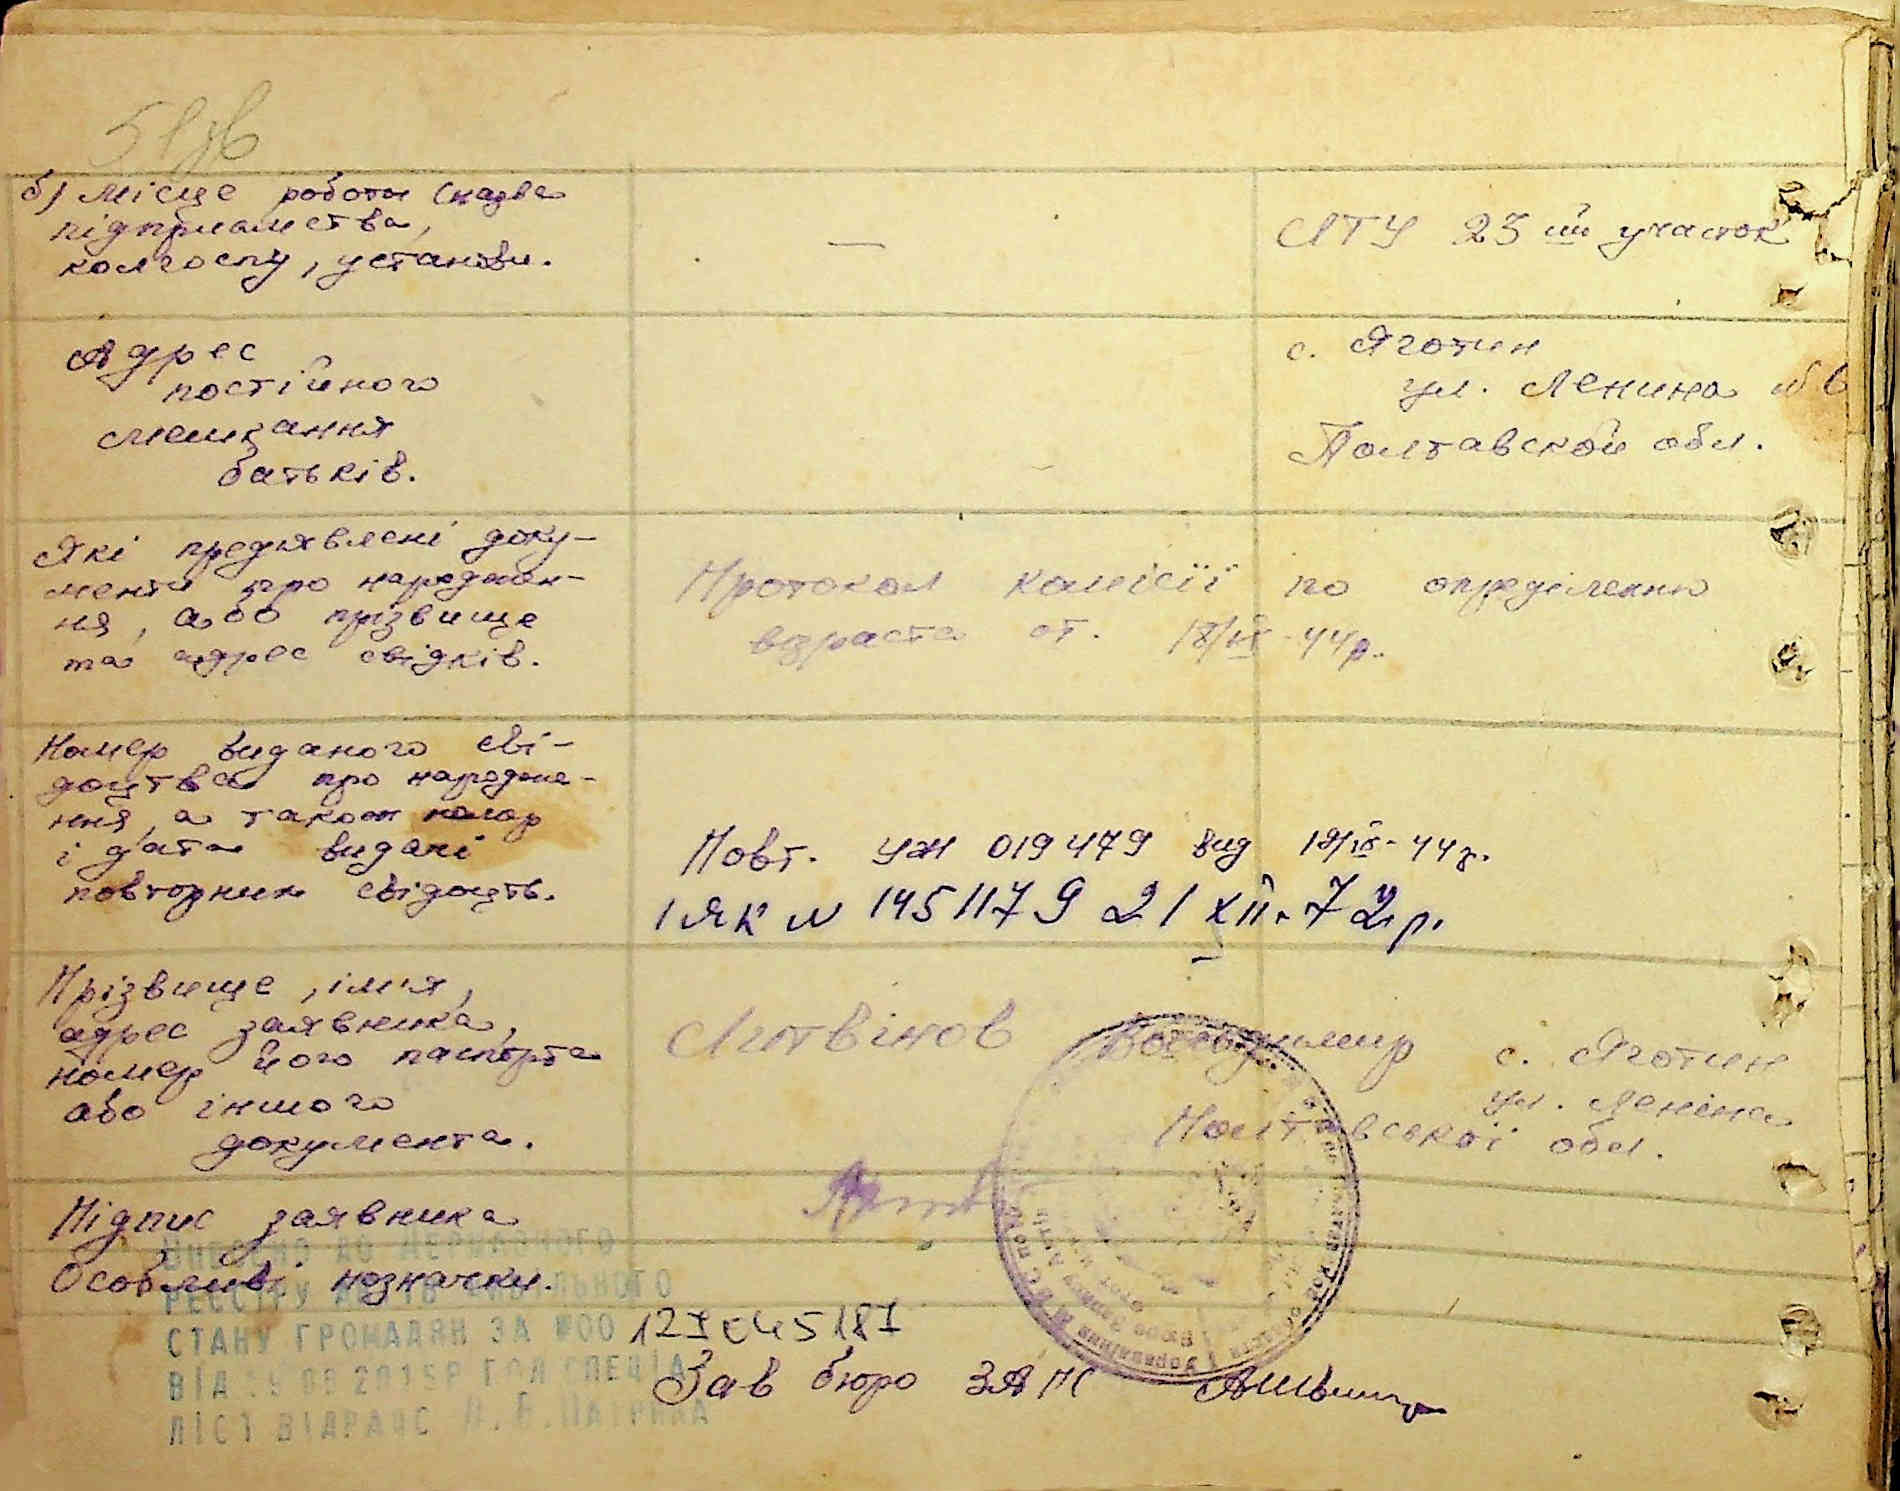 б) Місце роботи (назва
підприємства,
колгоспу, установи.
—
ЛТУ 23 ий участок
Адрес
постійного
мешкання
батьків.
с. Яготин
ул. Ленина №
Полтавской обл.
Які предъявлені доку-
менти про народжен-
ня, або прізвище
та адрес свідків.
Протокол комісії по определению
взраста от. 18/IX-44р.
Номер виданого сві-
доцтва про народже-
ння, а також номер
і дата видачі
повторних свідоцтв.
Повт. УЖ 019479 вид 18/IX-44р.
I ЯК № 1451179 21 XII.72р.
Прізвище, ім'я,
адрес заявника,
номер його паспорта
або іншого
документа.
Литвінов Володимир с. Яготин
ул. Леніна
Полтавської обл.
Підпис заявника
Особливі позначки.
ВНЕСЕНО ДО ДЕРЖАВНОГО
РЕЄСТРУ АКТІВ ЦИВІЛЬНОГО
СТАНУ ГРОМАДЯН ЗА №00
ВІД 2015Р ГОЛ СПЕЦІА
ЛІСТ ВІДРАЦС
Зав бюро ЗАГС